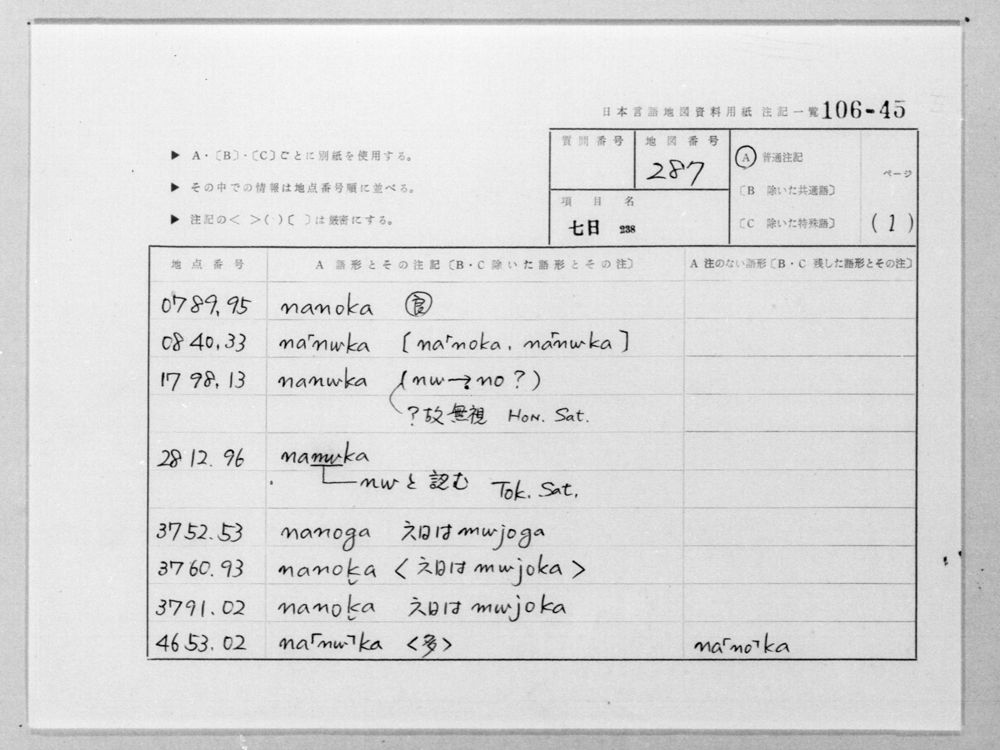 日本言語地図資料用紙 注記一覧 106-45
▶ A・〔B〕・〔C〕ごとに別紙を使用する。
▶ その中での情報は地点番号順に並べる。
▶ 注記の< >( )〔 〕は厳密にする。
質問番号
地図番号 287
項目名 七日 238
Ⓐ 普通注記
〔B 除いた共通語〕
〔C 除いた特殊語〕
ページ
(1)
地点番号 A 語形とその注記〔B・C 除いた語形とその注〕 A 注のない語形〔B・C 残した語形とその注〕
0789.95 nanoka
0840.33 na「nɯka [na「noka, na「nɯka]
1798.13 nanɯka (nɯ→no?)
?故無視 Hon. Sat.
2812.96 nanɯka
nɯと認む Tok. Sat.
3752.53 nanoga 六日はmɯjoga
3760.93 nanok̬a <六日はmɯjoka>
3791.02 nanok̬a 六日はmɯjoka
4653.02 na「nɯ」ka <多> na「no」ka